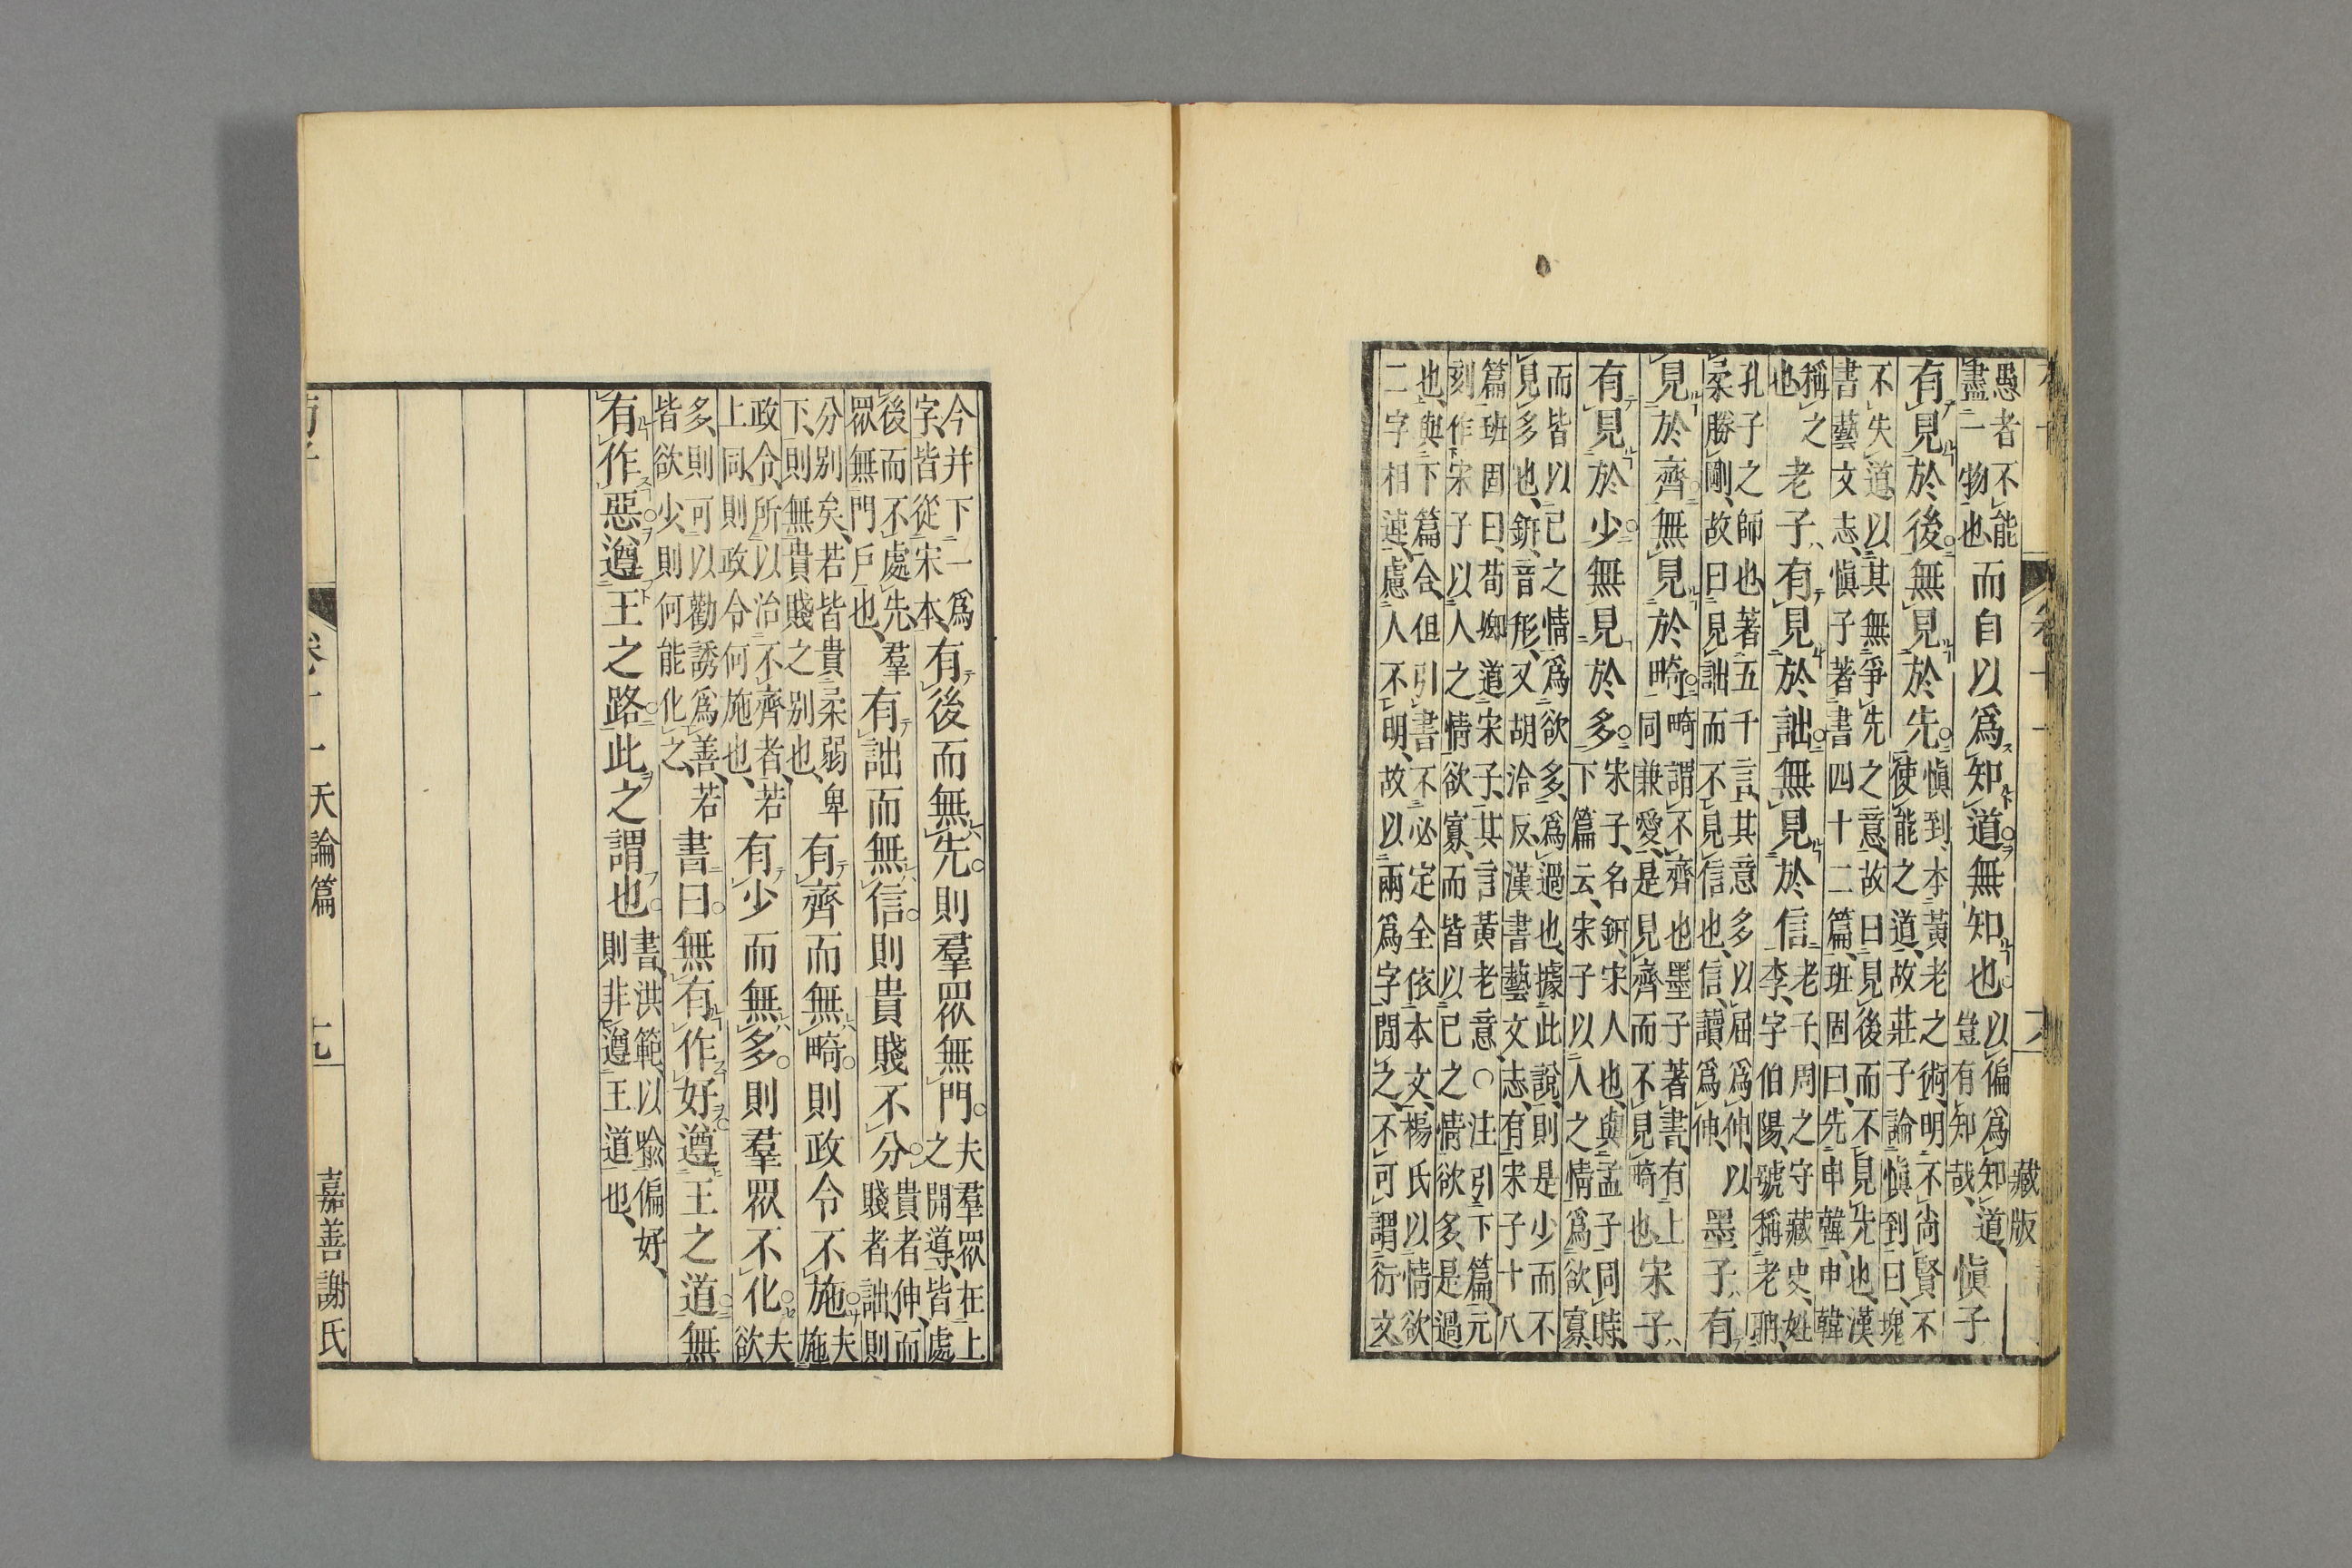 藏版
愚者不能盡一物也而自以爲知道無知也以偏爲知道豈有知哉慎子
有見於後無見於先慎到本黃老之術明不尚賢不使能之道故莊子論慎到曰塊
不失道以其無爭先之意故曰見後而不見先也漢書藝文志慎子著書四十二篇班固曰先申韓申韓
稱之也老子有見於詘無見於信老子周之守藏史姓李字伯陽號稱老聃
孔子之師也著五千言其意多以屈爲伸以柔勝剛故曰見詘而不見信也信讀爲伸墨子有
見於齊無見於畸畸謂不齊也墨子著書有上同兼愛是見齊而不見畸也宋子
有見於少無見於多宋子名鈃宋人也與孟子同時下篇云宋子以人之情爲欲寡
而皆以己之情爲欲多爲過也據此說則是少而不見多也鈃音形又胡洽反漢書藝文志有宋子十八
篇班固曰荀卿道宋子其言黃老意○注引下篇元刻作宋子以人之情欲寡而皆以己之情欲多是過
也與下篇合但引書不必定全依本文楊氏以情欲二字相連慮人不明故以兩爲字閒之不可謂衍文
今并下一爲字皆從宋本有後而無先則羣眾無門夫羣眾在上之開導皆處
後而不處先羣眾無門戶也有詘而無信則貴賤不分貴者伸而賤者詘則
分别矣若皆貴柔弱卑下則無貴賤之別也有齊而無畸則政令不施夫施
政令所以治不齊者若上同則政令何施也有少而無多則羣眾不化夫欲
多則可以勸誘爲善若皆欲少則何能化之書曰無有作好遵王之道無
有作惡遵王之路此之謂也書洪範以喻偏好則非遵王道也
卷十一 天論篇 嘉善謝氏